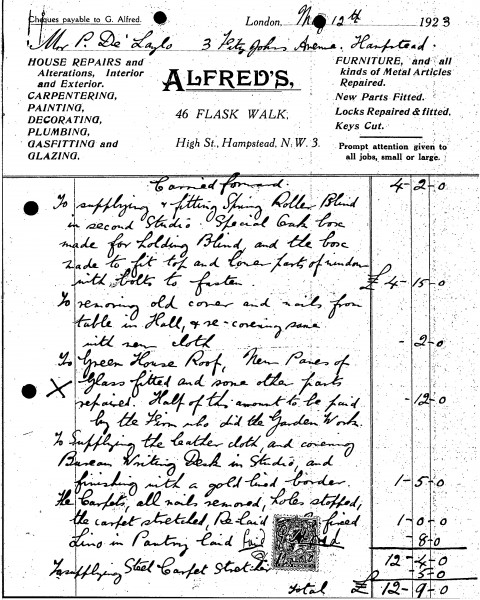 Cheques payable to G. Alfred.
London, May 12th 1923
Mr P. De Laszlo 3 Fitz Johns Avenue. Hampstead.
HOUSE REPAIRS and
Alterations, Interior
and Exterior.
CARPENTERING,
PAINTING,
DECORATING,
PLUMBING,
GASFITTING and
GLAZING.
ALFRED'S,
46 FLASK WALK,
High St., Hampstead, N.W. 3.
FURNITURE, and all
kinds of Metal Articles
Repaired.
New Parts Fitted.
Locks Repaired & fitted.
Keys Cut.
Prompt attention given to
all jobs, small or large.
Carried forward. 4-2-0
To supplying & fitting Spring Roller Blind
in second Studio Special Oak box
made for holding Blind, and the box
made to fit top and lower parts of window
with bolts to fasten. £ 4-15-0
To removing old cover and nails from
table in Hall, & re-covering same
with new cloth - 2-0
To Green House Roof, New Panes of
X Glass fitted and some other parts
repaired. Half of this amount to be paid - 12-0
by the Firm who did the Garden Work.
To Supplying the leather cloth and covering
Bureau Writing Desk in Studio, and
finishing with a gold lined border. 1-5-0
The Carpets, all nails removed, holes stopped,
the carpet stretched, Re-laid fixed 1-0-0
Lino in Pantry laid - 8-0
12-4-0
To supplying Steel Carpet Stretcher 5-0
Total £ 12-9-0